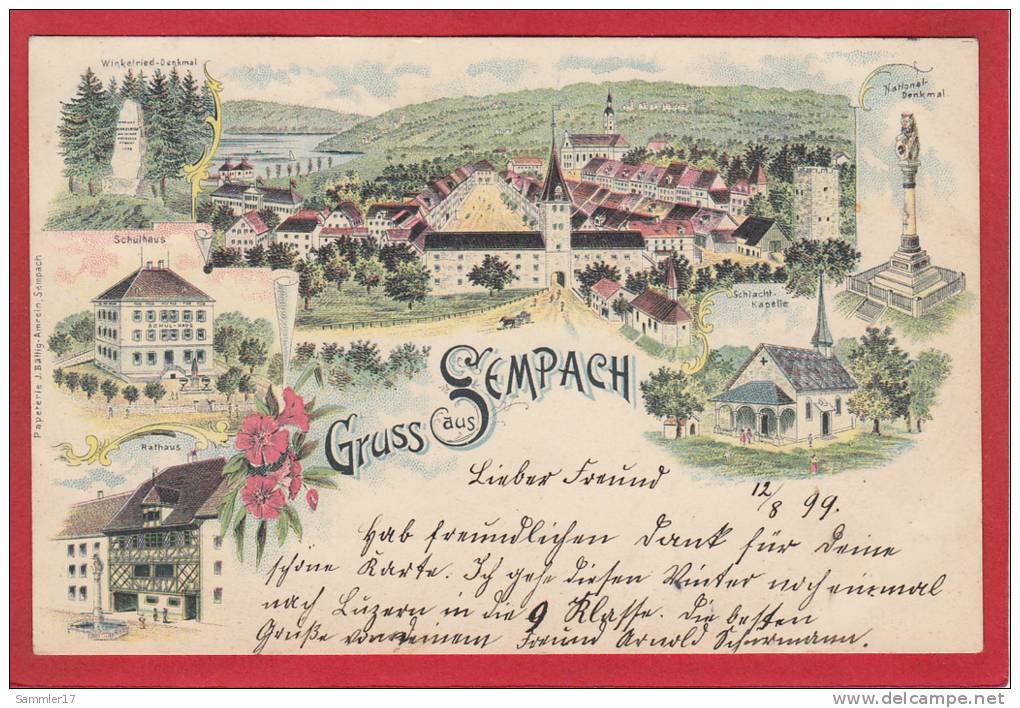 Winkelried-Denkmal
National-
Denkmal
Schulhaus
SCHUL-HAUS
Schlacht-
Kapelle
Papeterie J. Bättig-Amrein, Sempach
Rathaus
Gruss aus SEMPACH
Lieber Freund 12/8 99.
Hab freundlichen Dank für Deine
schöne Karte. Ich gehe diesen Winter noch einmal
nach Luzern in die 9 Klasse. Die besten
Grüße von deinem Freund Arnold Schürmann.
Sammler17
www.delcampe.net